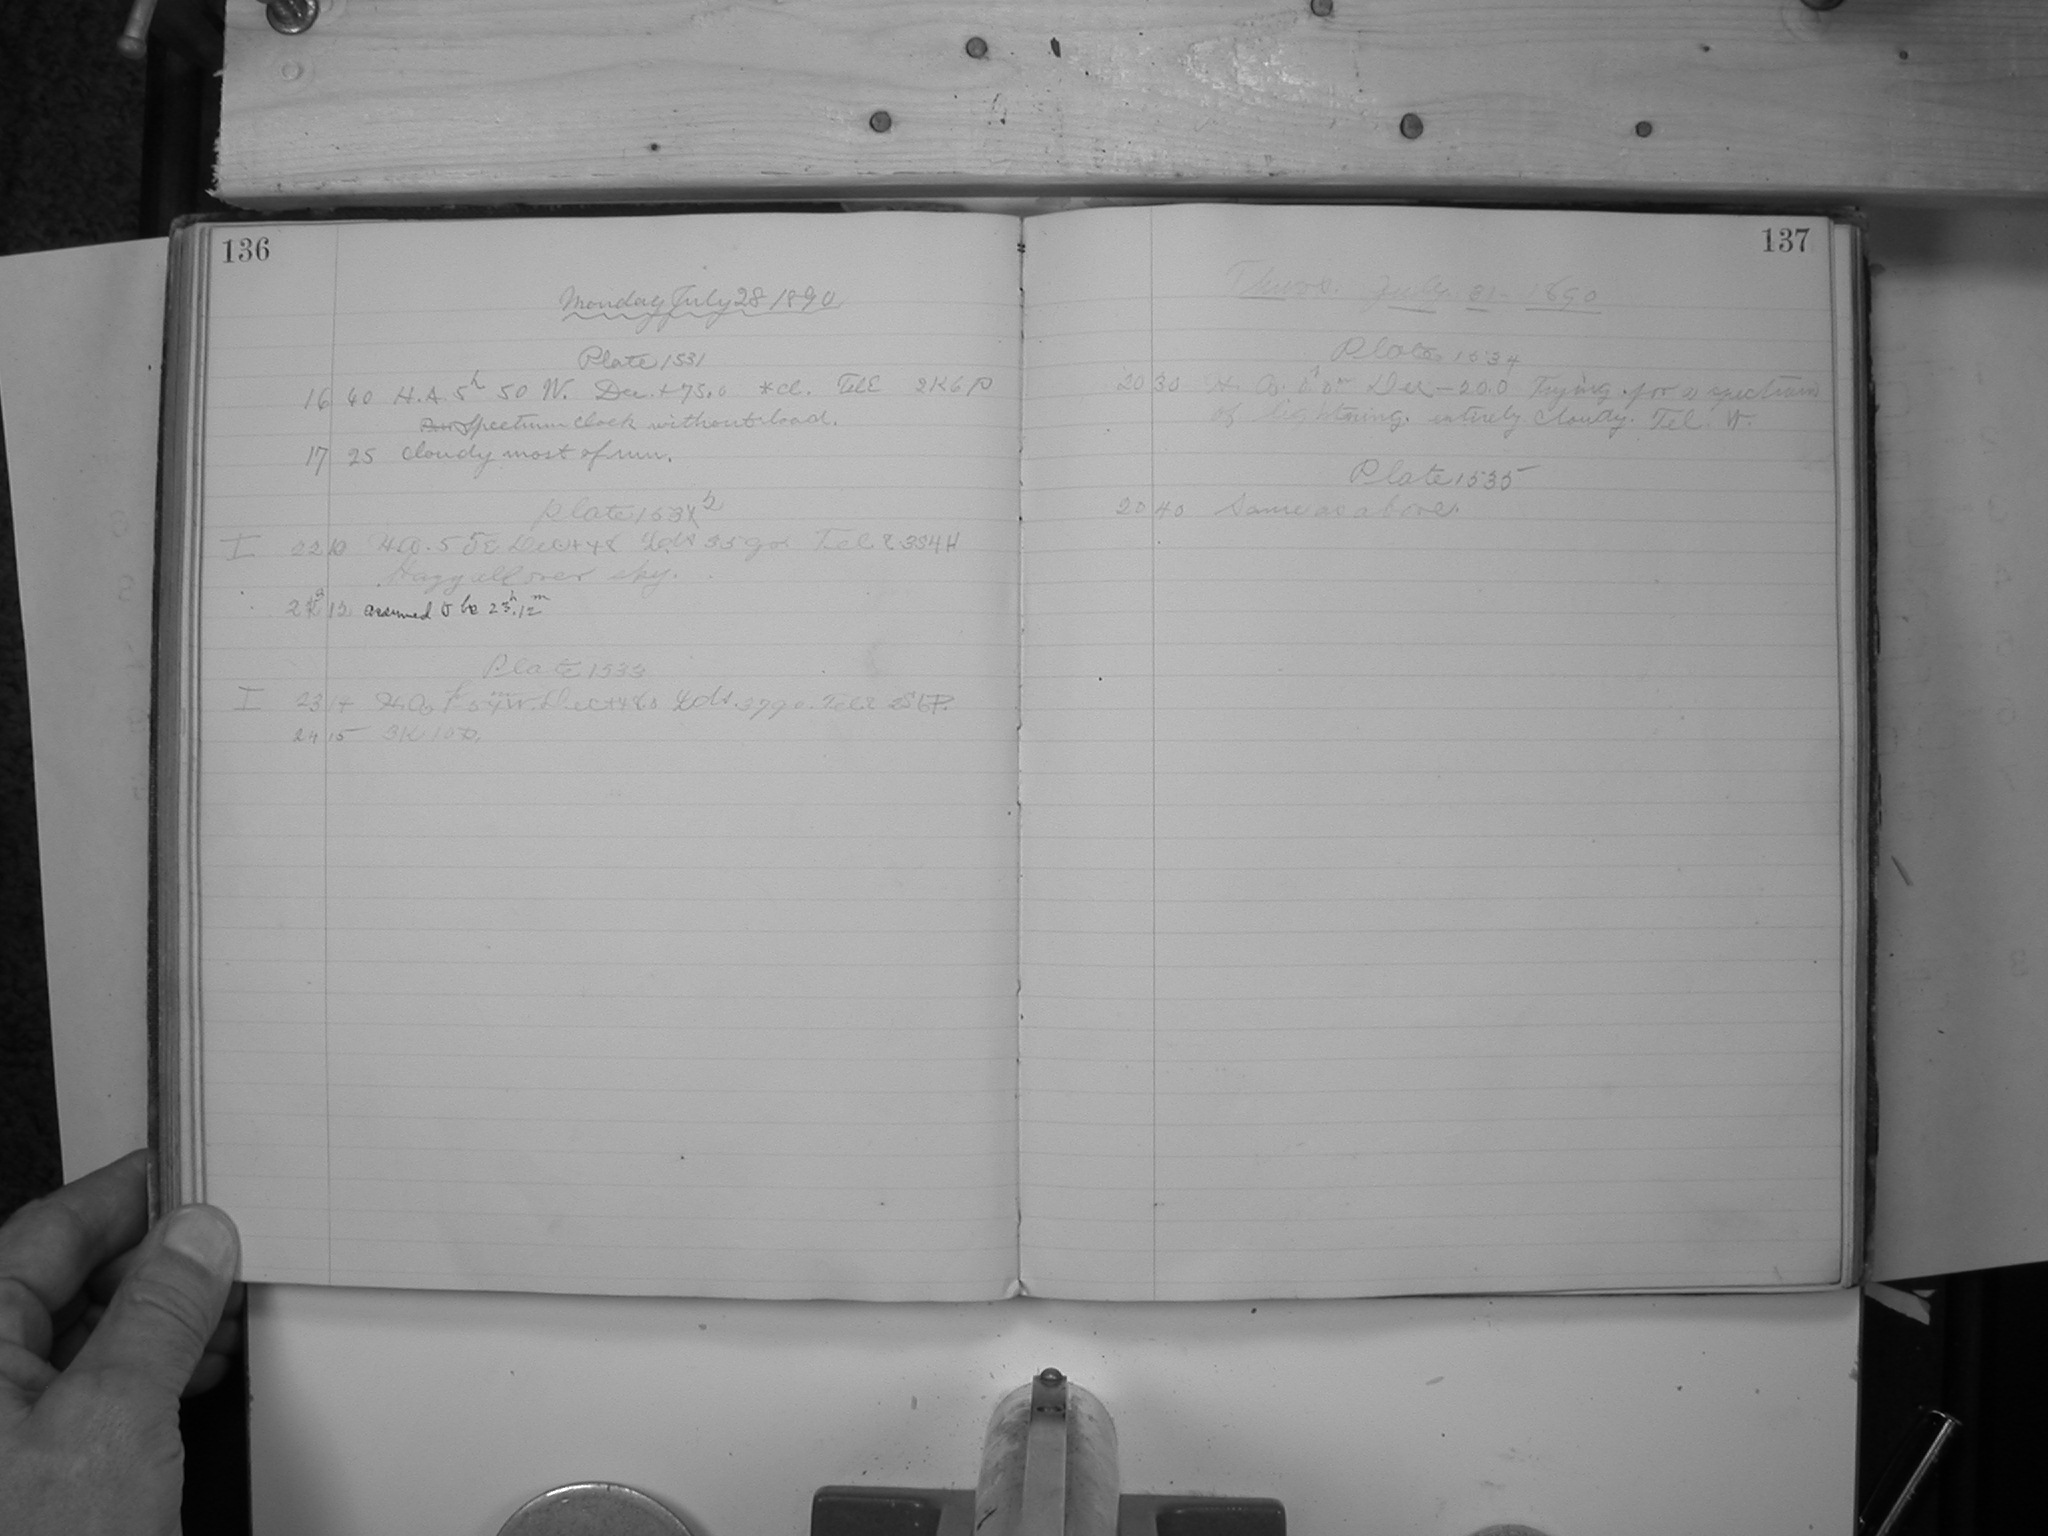 136
Monday July 28 1890
Plate 1531
16 40 H.A. 5h 50 W. Dec. +75.0 *cl. Tel E 2K6P
Spectrum clock without load.
17 25 Cloudy most of run.
Plate 1532
I 22 10 Tel E 3S4H
Hazy all over sky.
23 12 assumed to be 23h.12m
Plate 1533
I 23 14
24 15
137
Thurs. July 31 1890
Plate 1534
20 30 H. A. 0h 0m Dec -20.0 Trying for a spectrum
of lightning. entirely cloudy. Tel. W.
Plate 1535
20 40 Same as above.